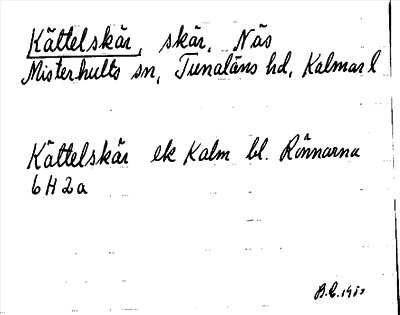 Kättelskär, skär, Näs
Misterhults sn, Tunaläns hd, Kalmar l
Kättelskär ek Kalm bl. Rönnarna
6 H 2 a